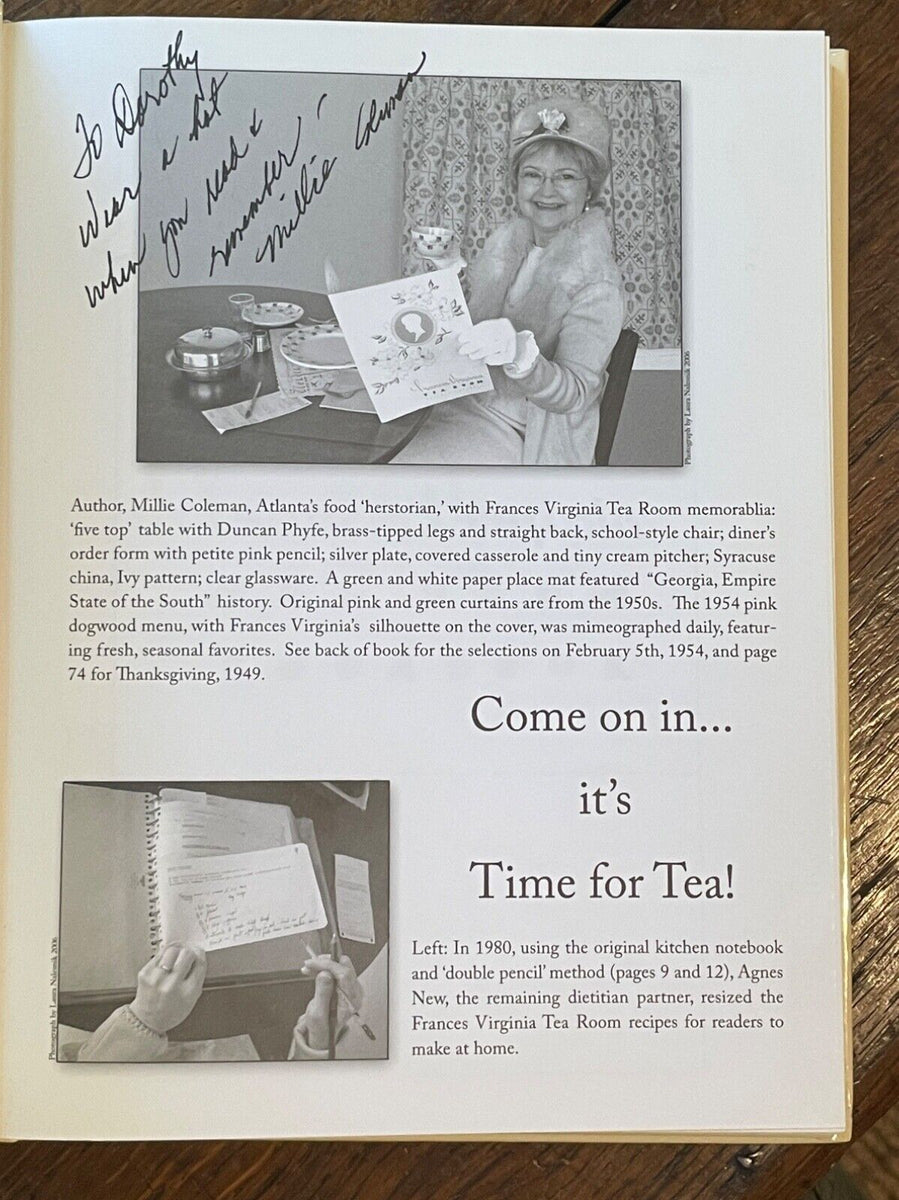 To Dorothy
Wear a hat
when you read &
remember!
Millie Coleman
TEA ROOM
Photograph by Laura Nalesnik 2006
Author, Millie Coleman, Atlanta’s food ‘herstorian,’ with Frances Virginia Tea Room memorablia:
‘five top’ table with Duncan Phyfe, brass-tipped legs and straight back, school-style chair; diner’s
order form with petite pink pencil; silver plate, covered casserole and tiny cream pitcher; Syracuse
china, Ivy pattern; clear glassware. A green and white paper place mat featured “Georgia, Empire
State of the South” history. Original pink and green curtains are from the 1950s. The 1954 pink
dogwood menu, with Frances Virginia’s silhouette on the cover, was mimeographed daily, featur-
ing fresh, seasonal favorites. See back of book for the selections on February 5th, 1954, and page
74 for Thanksgiving, 1949.
Come on in...
it’s
Time for Tea!
Photograph by Laura Nalesnik 2006
Left: In 1980, using the original kitchen notebook
and ‘double pencil’ method (pages 9 and 12), Agnes
New, the remaining dietitian partner, resized the
Frances Virginia Tea Room recipes for readers to
make at home.